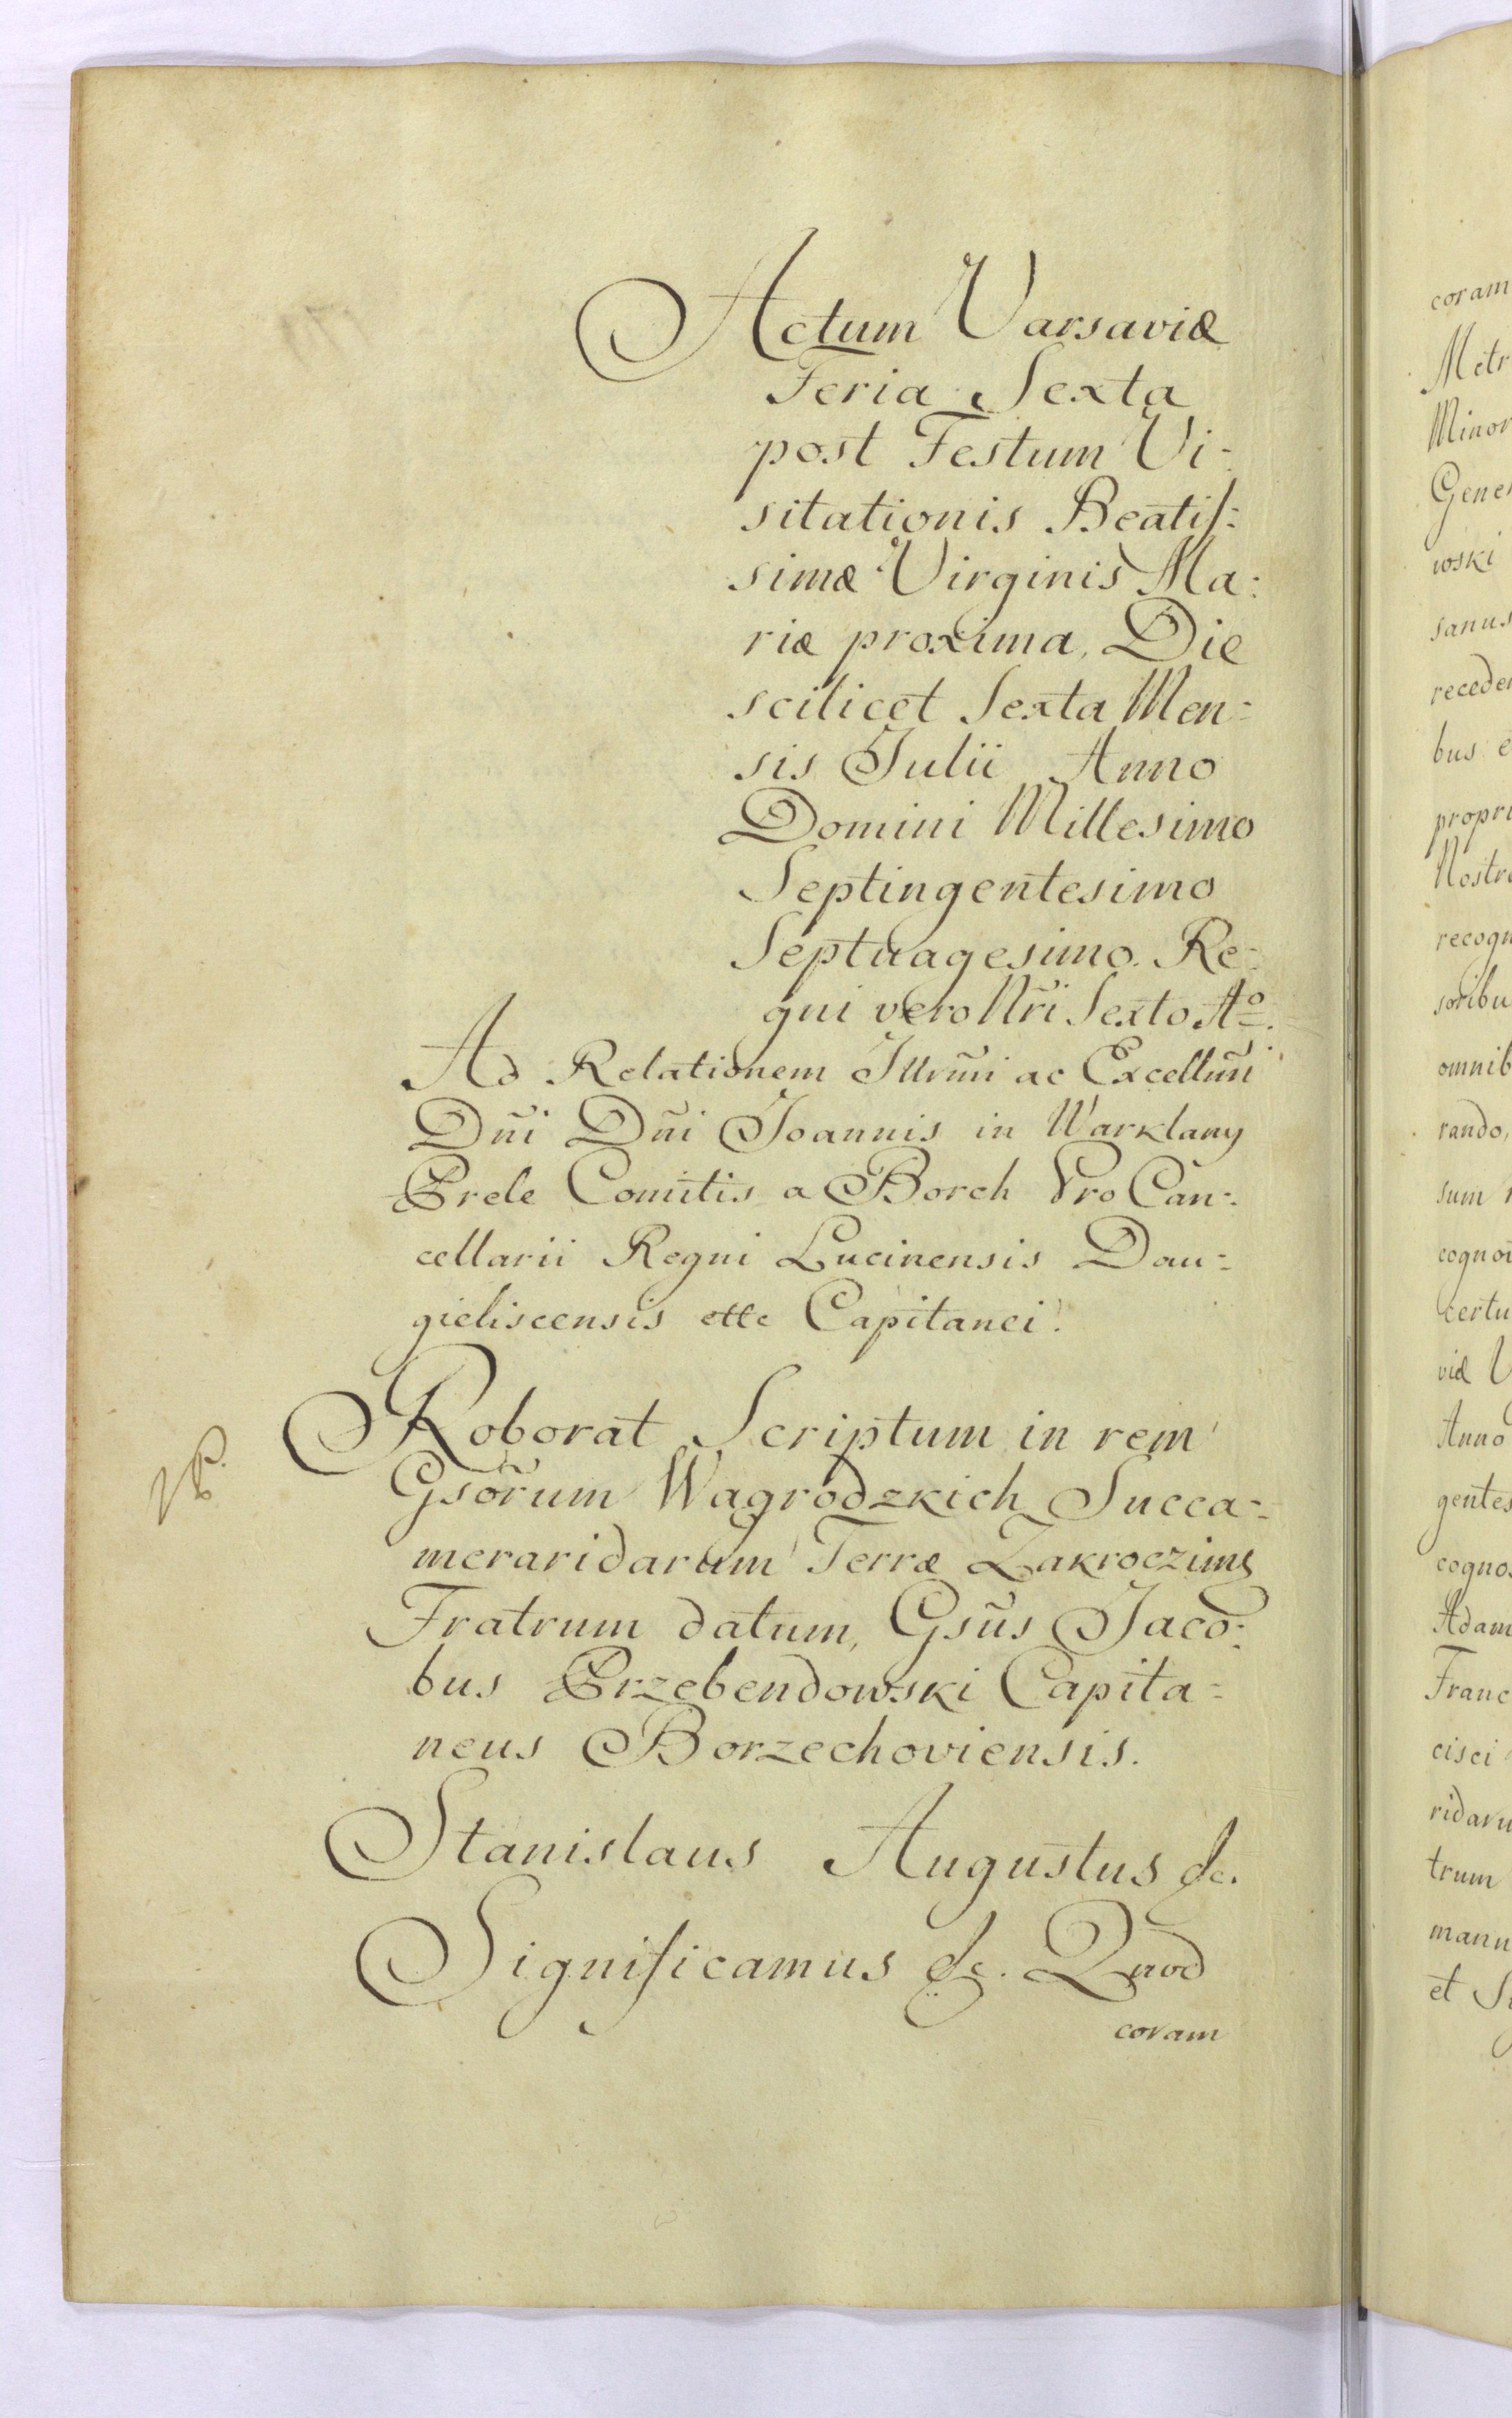 Actum Varsaviæ
Feria Sexta
post Festum Vi-
sitationis Beatis:
simæ Virginis Ma:
riæ proxima, Die
scilicet Sexta Men-
sis Julii Anno
Domini Millesimo
Septingentesimo
Septuagesimo. Re-
gni vero Nri Sexto Ao.
Ad Relationem Illrmi ac Excellmi
Dñi Dñi Joannis in Warklany
Prele Comitis a Borch Pro Can-
cellarii Regni Lucinensis Dau-
gieliscensis ettc Capitanei.
Roborat Scriptum in rem
Gsorum Wagrodzkich Succa-
meraridarum Terræ Zakroczims
Fratrum datum, Gsus Jaco-
bus Przebendowski Capita-
neus Borzechoviensis.
Stanislaus Augustus &c.
Significamus &c. Quod
coram
coram
Metr
Minor
Gener
woski
sanus
receden
bus e
propri
Nostra
recogn
soribu
omnib
rando,
sum
cognos
certu
viæ V
Anno
gentes
cognos
Adam
Franc
cisci
ridaru
trum
manu
et